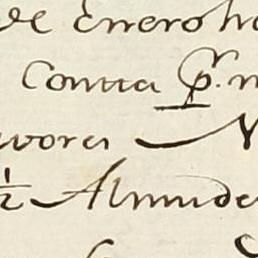 de Enero h
Contra p.
vora N
½ Almude